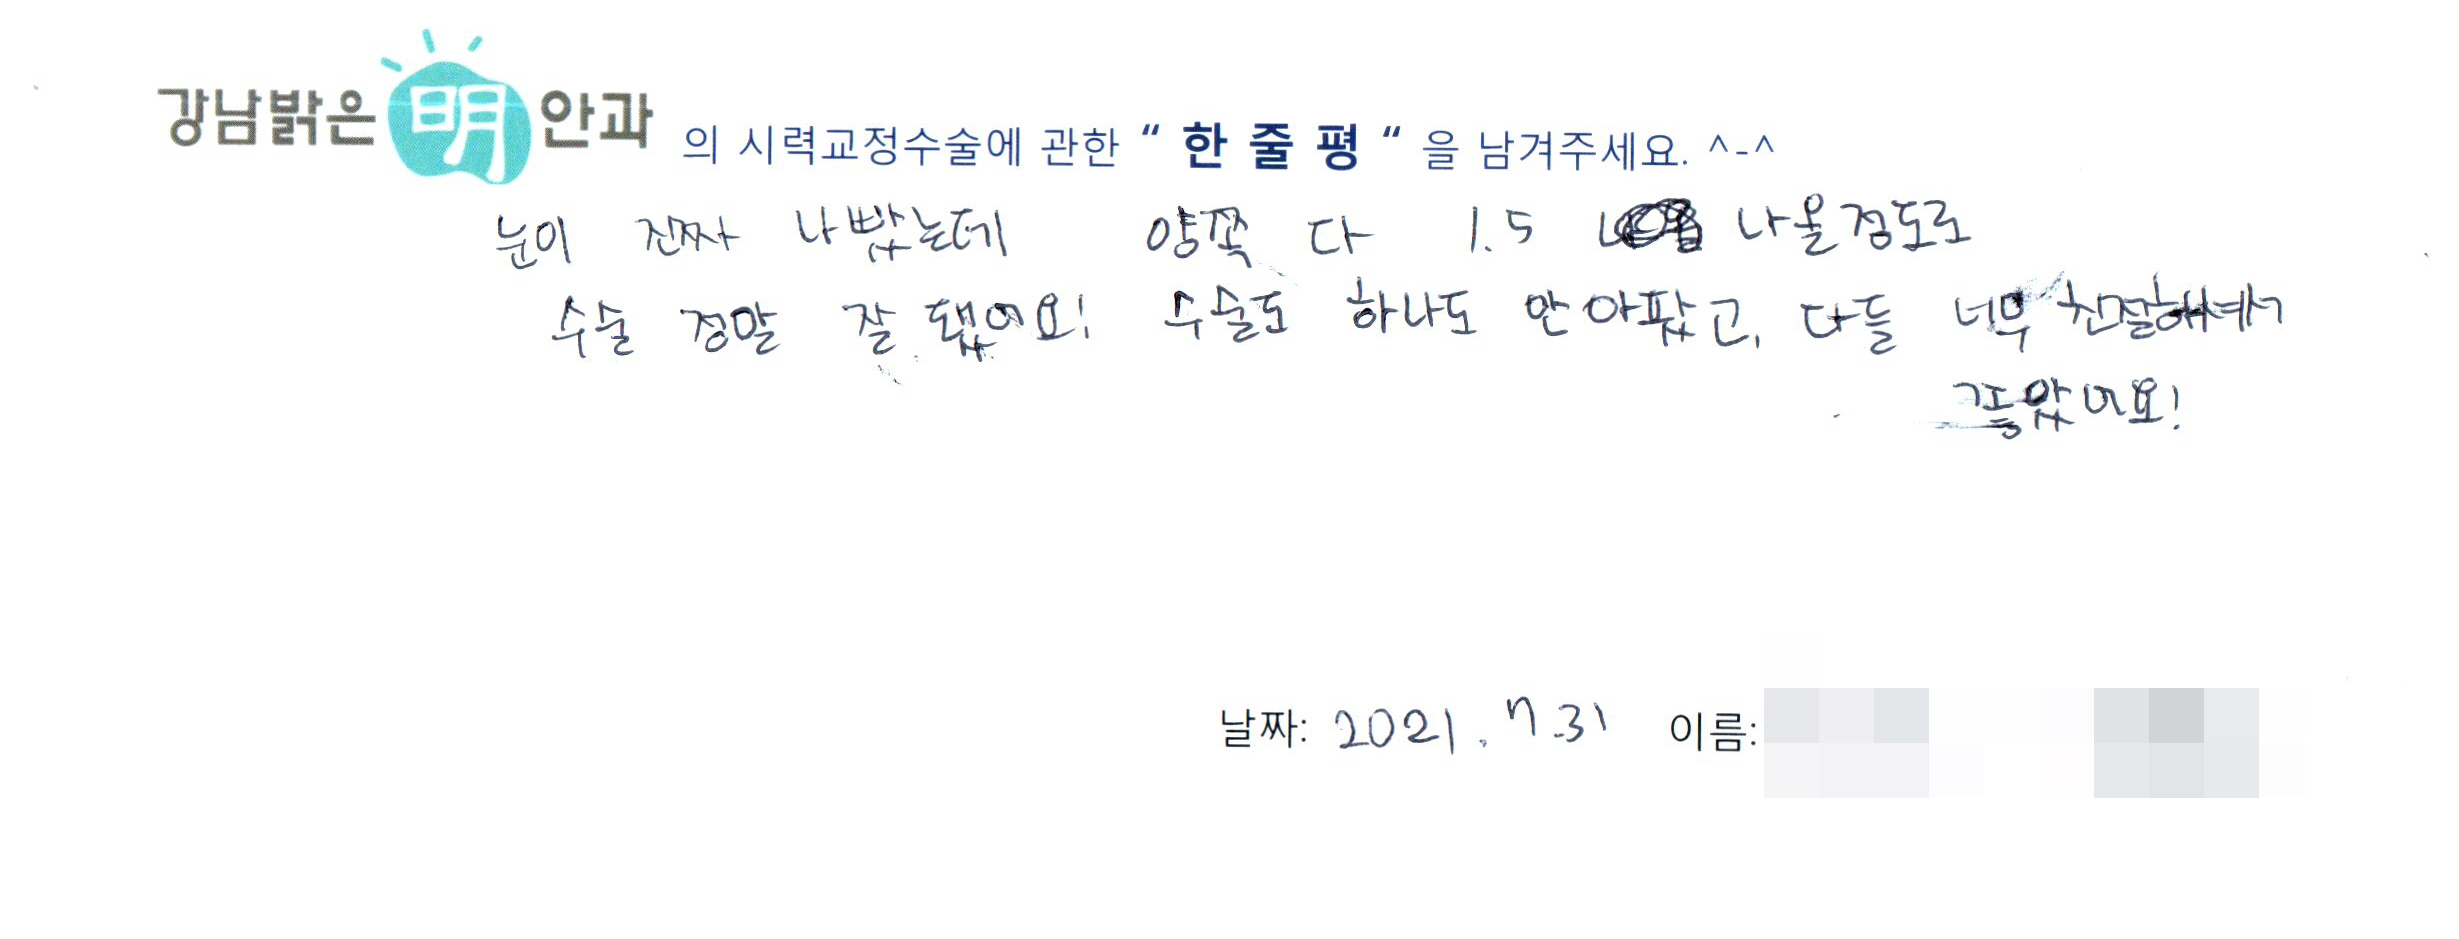 강남밝은明안과 의 시력교정수술에 관한 “ 한 줄 평 “ 을 남겨주세요. ^-^
눈이 진짜 나빴는데 양쪽 다 1.5 나올정도로
수술 정말 잘 됐어요! 수술도 하나도 안 아팠고, 다들 너무 친절하셔서
좋았어요!
날짜: 2021. 7.31 이름: